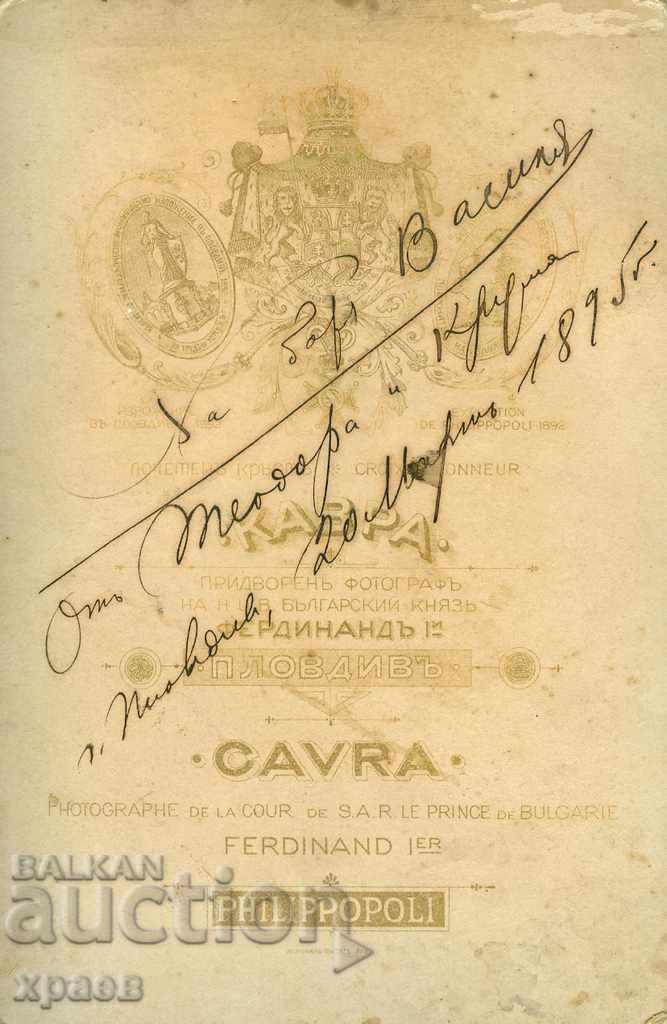 На бор Василя
Отъ Теодора и Крума
г. Пловдив, 20 Мартъ 1895 г.
ВЪ ПЛОВДИВЪ 1892
DE PHILIPPOPOLI-1892
ПОЧЕТЕНЪ КРЪСТЪ CROIX D'HONNEUR
КАВРА
ПРИДВОРЕНЪ ФОТОГРАФЪ
НА Н.Ц.В. БЪЛГАРСКИЙ КНЯЗЬ
ФЕРДИНАНДЪ Iй
ПЛОВДИВЪ
CAVRA
PHOTOGRAPHE DE LA COUR DE S.A.R. LE PRINCE DE BULGARIE
FERDINAND IER
PHILIPPOPOLI
BALKAN
auction
храов